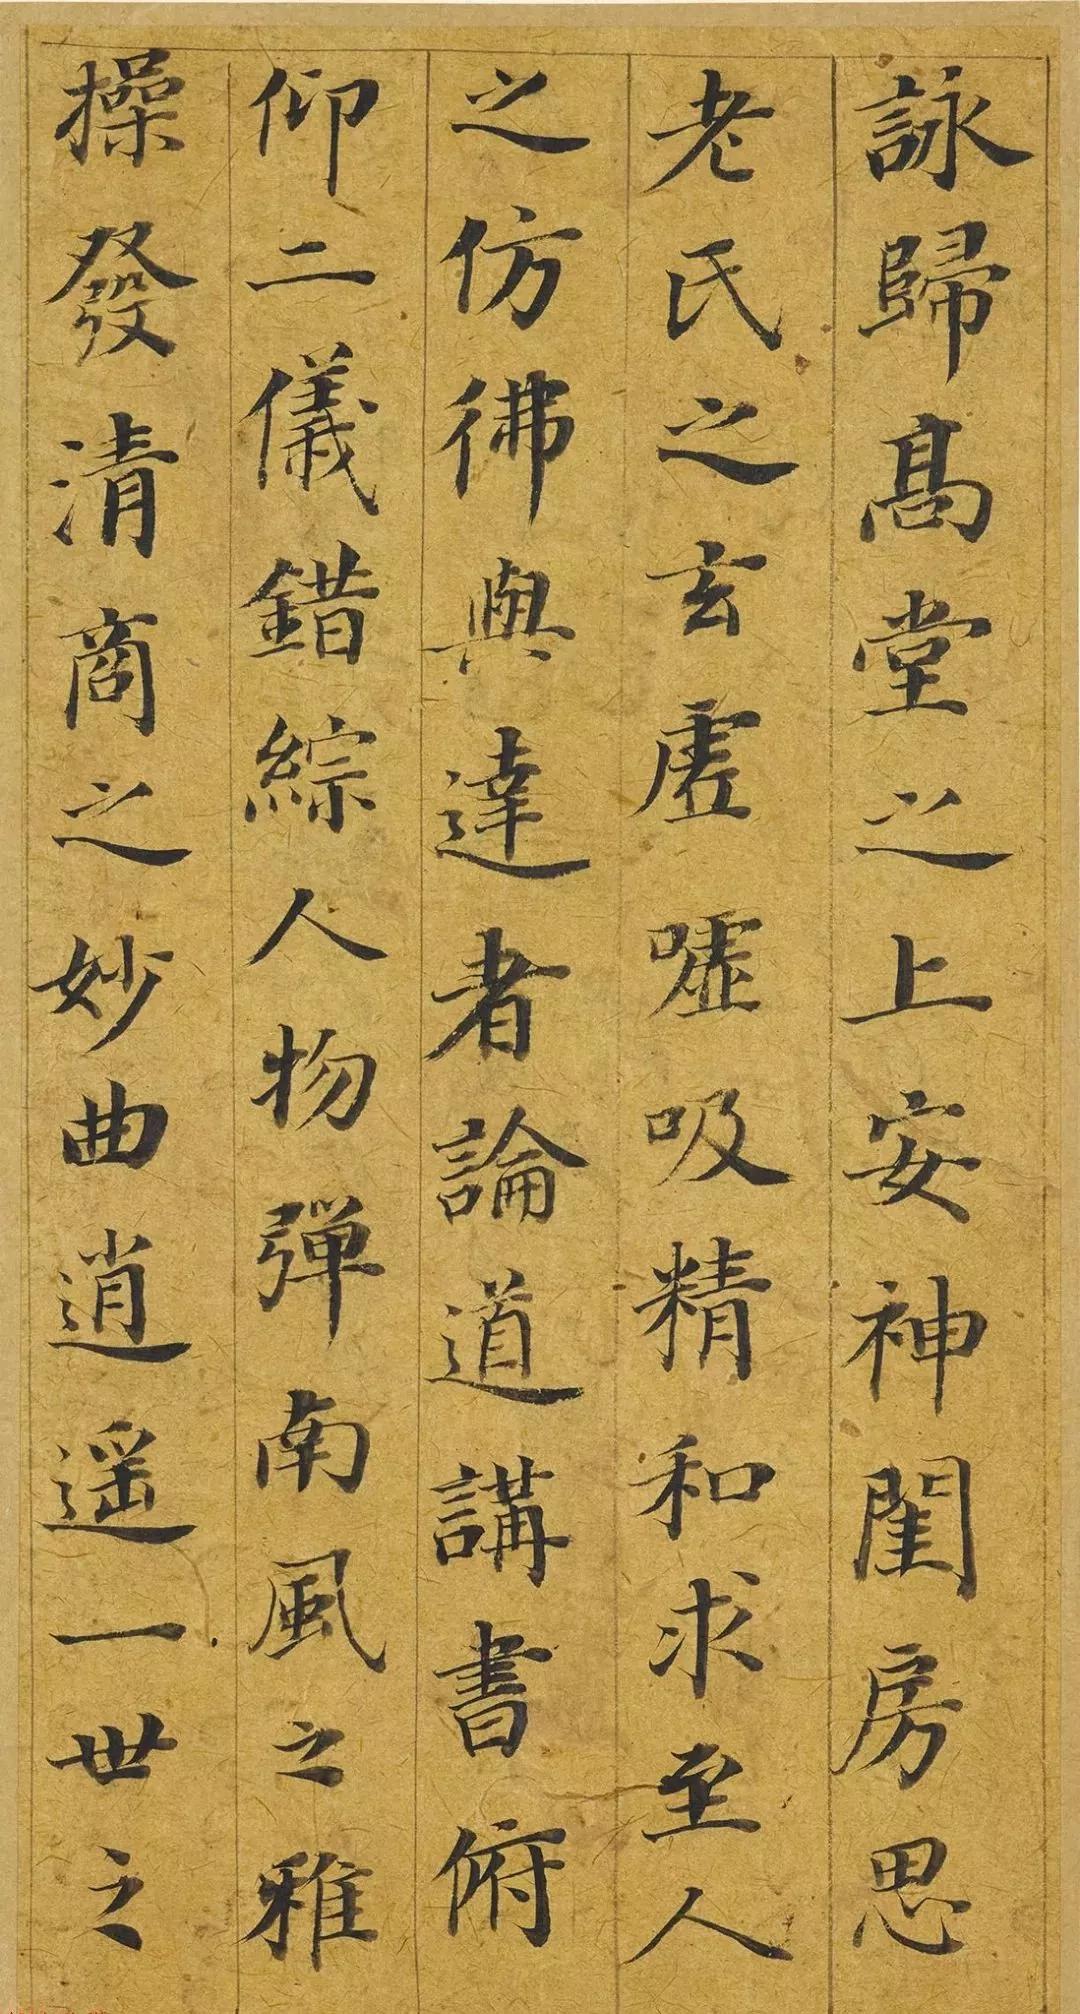 詠歸髙堂之上安神閨房思
老氏之玄虛嘘吸精和求至人
之仿彿與達者論道講書俯
仰二儀錯綜人物弾南風之雅
操發清商之妙曲逍遥一世之